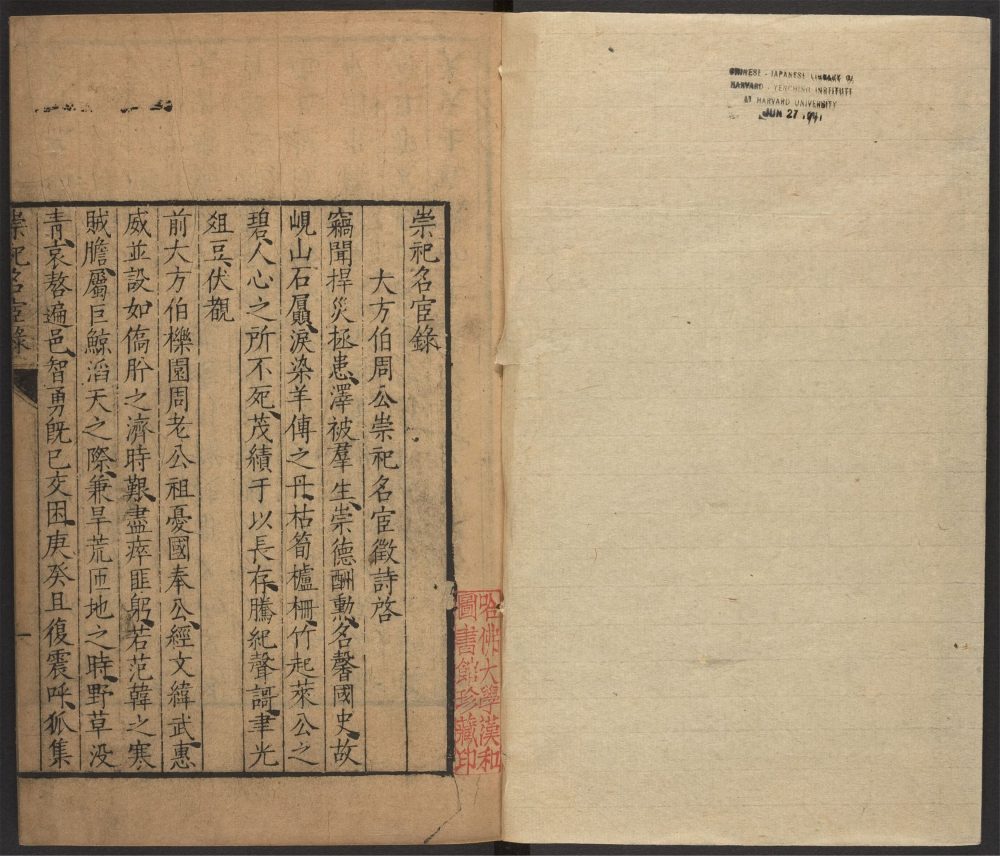 CHINESE - JAPANESE LIBRARY OF
HARVARD - YENCHING INSTITUTE
AT HARVARD UNIVERSITY
JUN 27 1941
哈佛大學漢和
圖書館珍藏印
崇祀名宦錄
大方伯周公崇祀名宦徵詩啓
竊聞捍災拯患澤被羣生崇德酬勳名馨國史故
峴山石贔淚染羊傅之丹枯筍櫨柵竹起萊公之
碧人心之所不死茂績于以長存騰紀聲謌聿光
俎豆伏觀
前大方伯櫟園周老公祖憂國奉公經文緯武惠
威並設如僑肸之濟時艱盡瘁匪躬若范韓之寒
賊膽屬巨鯨滔天之際兼旱荒匝地之時野草没
青哀嗸遍邑智勇旣已交困庚癸且復震呼狐集
崇祀名宦錄
一